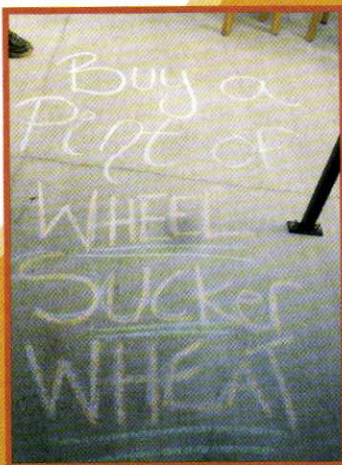 Buy a
Pint of
WHEEL
Sucker
WHEAT